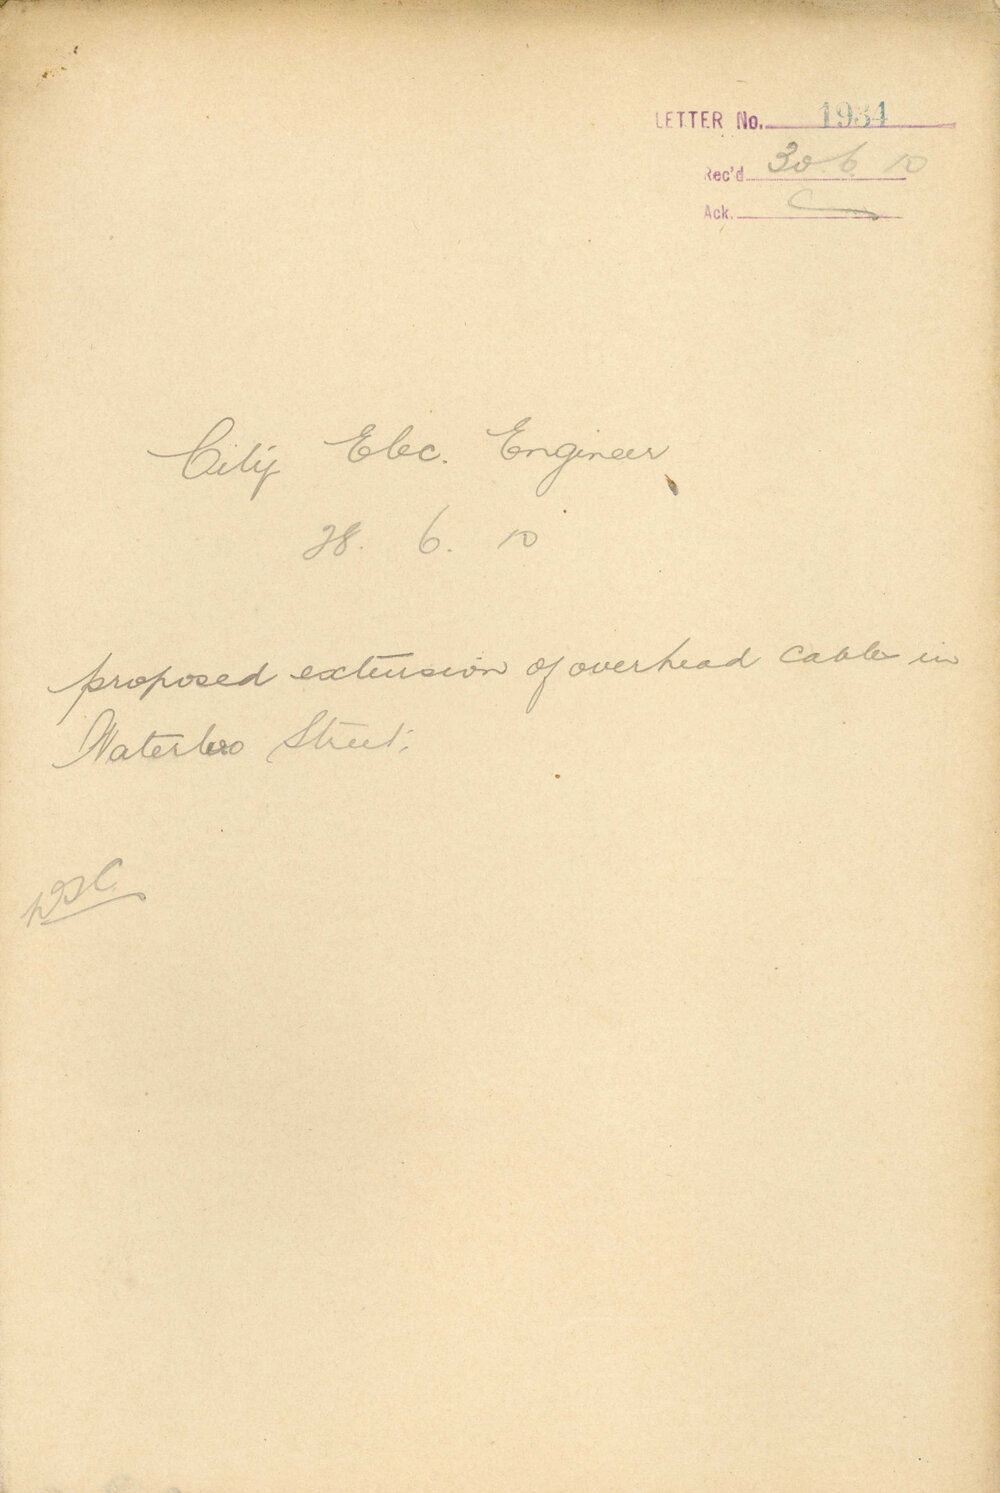 LETTER No. 1934
Rec'd 30 6 10
Ack.
City Elec. Engineer
28. 6. 10
proposed extension of overhead cable in
Waterloo Street.